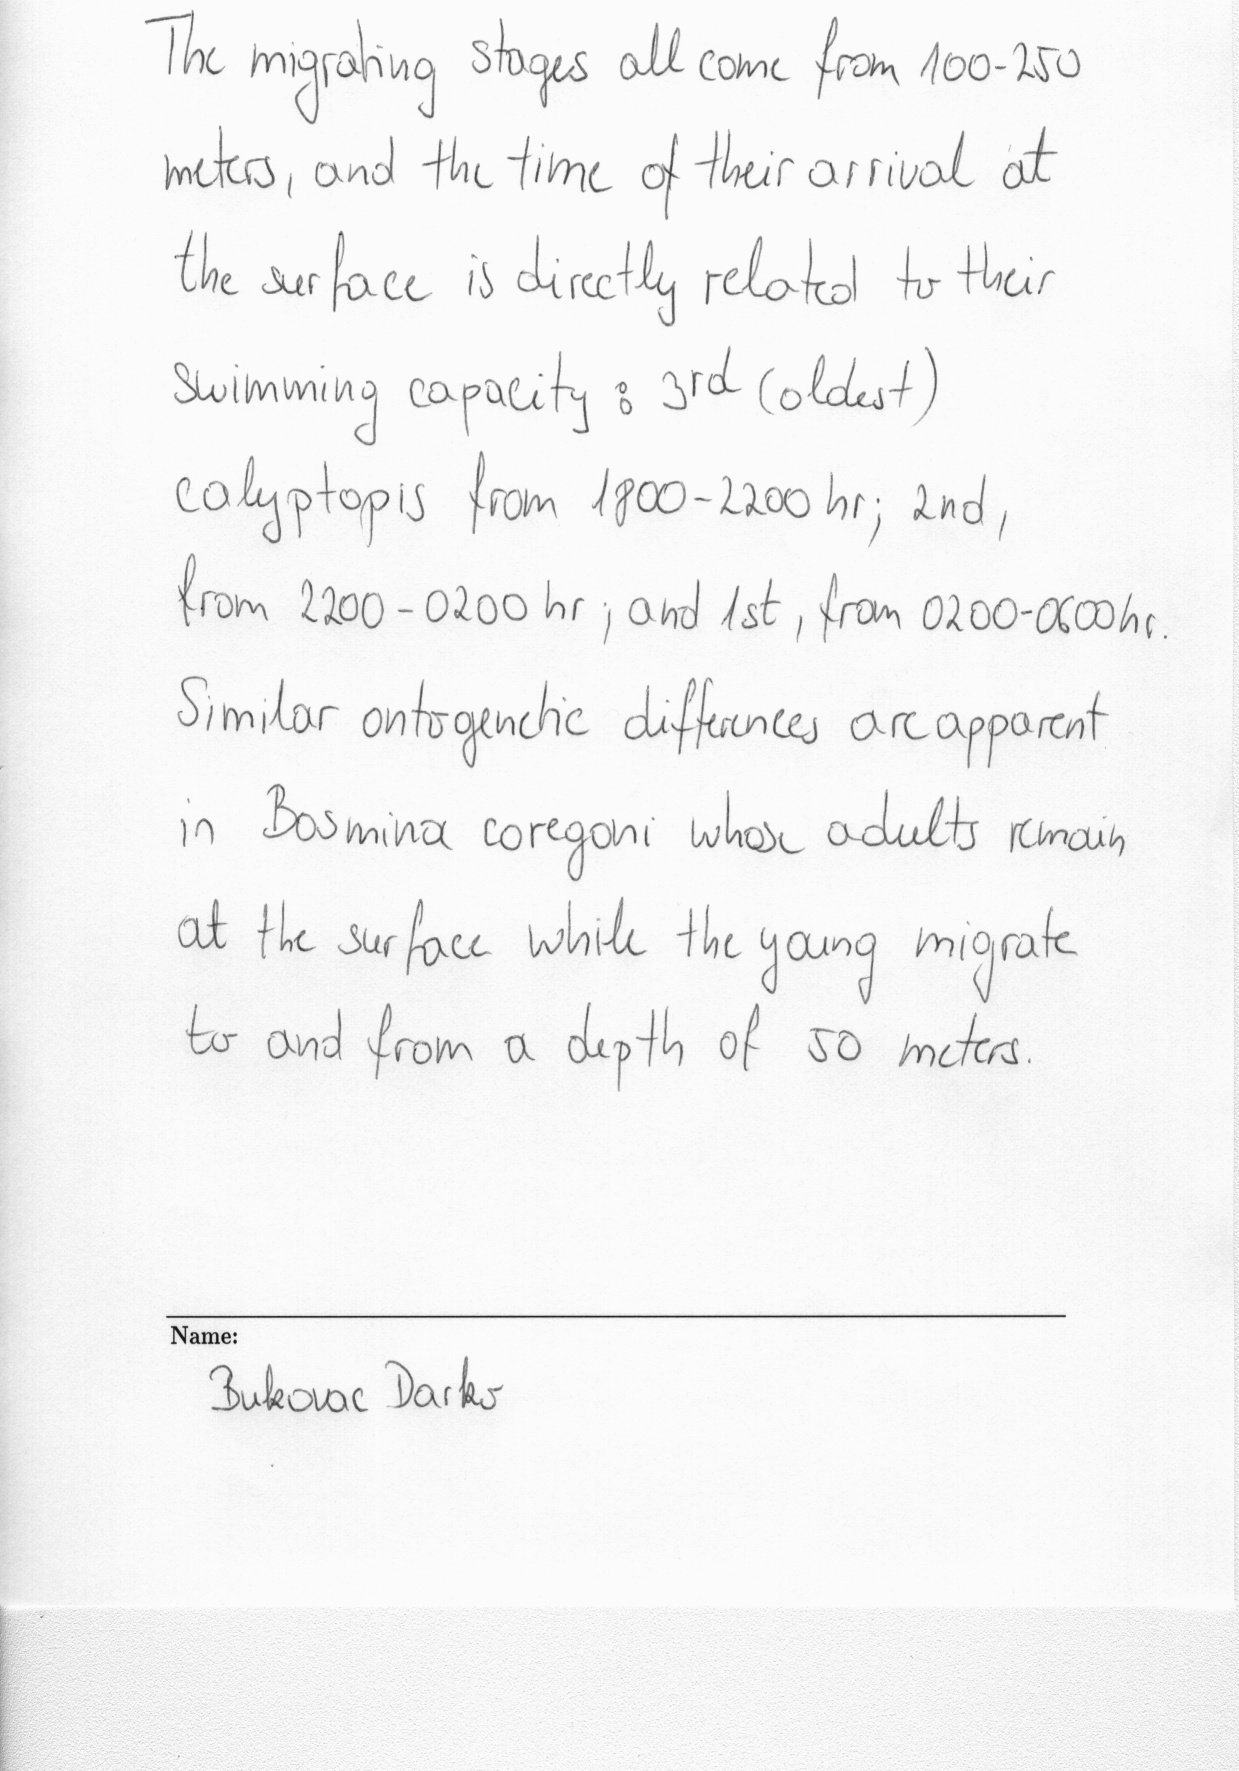 The migrating stages all come from 100-250
meters, and the time of their arrival at
the surface is directly related to their
swimming capacity : 3rd (oldest)
calyptopis from 1800-2200 hr; 2nd,
from 2200-0200 hr; and 1st, from 0200-0600 hr.
Similar ontogenetic differences are apparent
in Bosmina coregoni whose adults remain
at the surface while the young migrate
to and from a depth of 50 meters.
Name:
Bukovac Darko